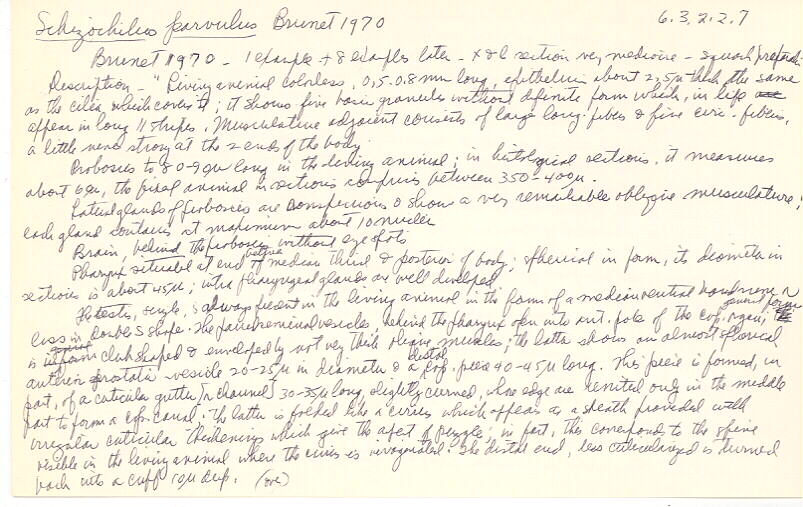 Schizochilus parvulus Brunet 1970 6.3.2.2.7
Brunet 1970 - 1 example + 8 examples later - section very mediocre - squash
Description - "Living animal colorless, 0,5-0.8 mm long, epithelium about 2,5µ thick, the same
as the cilia which covers it; it shows fine basic granules without definite form which, in
appear in long 11 stripes. Musculature adjacent consists of large long. fibers & fine circ. fibers,
a little more strong at the 2 ends of the body.
Proboscis to 80-90µ long in the living animal; in histological sections, it measures
about 60µ, the final animal in sections comprises between 350-400µ.
Lateral glands of proboscis are conspicuous & show a very remarkable oblique musculature;
each gland contains at maximum about 10 nuclei
Brain, behind the proboscis without eyespots
Pharynx situable at end before of median third & posterior of body; spherical in form, its diameter in
sections is about 45µ; intra pharyngeal glands are well developed.
testes, single, is always present in the living animal in the form of a median ventral band more or
less in double S shape. The paired seminal vesicles, behind the pharynx open into ant. pole of the cop. organ; general form
is club shaped & enveloped by not very thick oblique muscles; the latter shows an almost spherical
anterior prostatic vesicle 20-25µ in diameter & a distal cop. piece 40-45µ long. This piece is formed, in
part, of a cuticular gutter [or channel] 30-35µ long, slightly curved, whose edge are reunited only in the middle
part to form a canal. The latter is folded like a cirrus which appears as a sheath provided with
irregular cuticular thickenings which give the aspect of puzzle; in part, this correspond to the spine
visible in the living animal where the cirrus is invaginated. The distal end, less cuticularized is turned
back into a cuff 10µ deep. (over)